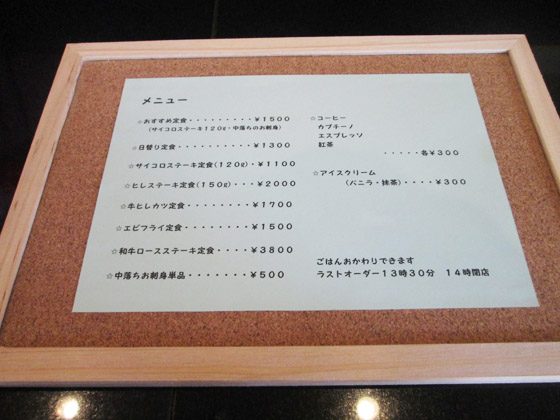 メニュー
☆おすすめ定食・・・・・・・・・¥1500
(サイコロステーキ120g・中落ちのお刺身)
☆日替り定食・・・・・・・・・・¥1300
☆サイコロステーキ定食(120g)・¥1100
☆ヒレステーキ定食(150g)・・・¥2000
☆牛ヒレカツ定食・・・・・・・・¥1700
☆エビフライ定食・・・・・・・・¥1500
☆和牛ロースステーキ定食・・・・¥3800
☆中落ちお刺身単品・・・・・・・¥500
☆コーヒー
カプチーノ
エスプレッソ
紅茶
・・・・・各¥300
☆アイスクリーム
(バニラ・抹茶)・・・・¥300
ごはんおかわりできます
ラストオーダー13時30分 14時閉店